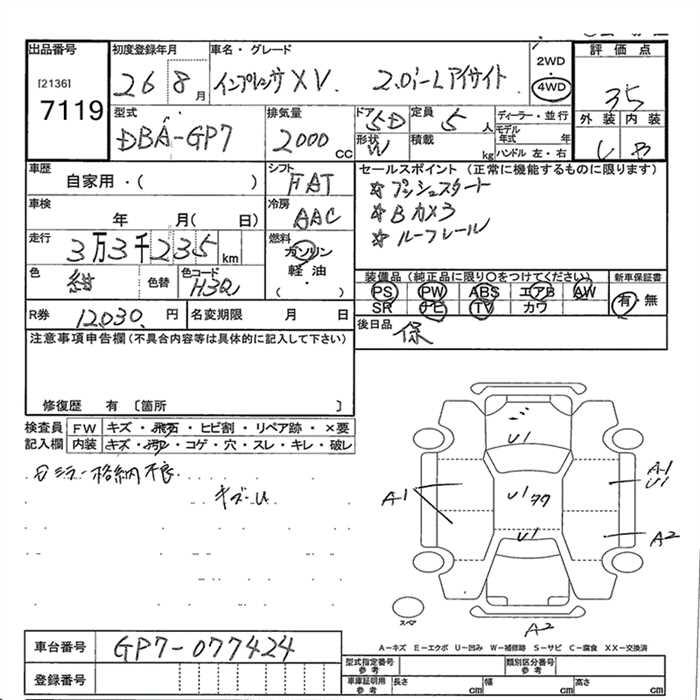 出品番号
[2136]
7119
初度登録年月
26 8月
車名・グレード
インプレッサXV. 2.0i-Lアイサイト
2WD
4WD
評価点
35
外装 内装
B
型式
DBA-GP7
排気量
2000 cc
ドア 5D
形状 W
定員 5人
積載 kg
ディーラー・並行
モデル年式 年
ハンドル 左・右
車歴
自家用・( )
シフト
FAT
車検
年 月( 日)
冷房
AAC
走行
3万3千235 km
燃料
ガソリン
軽油
( )
色
紺
色替
色コード
H3Q
R券
12030 円
名変期限 月 日
セールスポイント (正常に機能するものに限ります)
☆プッシュスタート
☆Bカメラ
☆ルーフレール
装備品 (純正品に限り○をつけてください)
PS PW ABS エアB AW
SR ナビ TV カワ
新車保証書
有・無
後日品
保
注意事項申告欄(不具合内容等は具体的に記入して下さい)
修復歴 有 〔箇所 〕
検査員記入欄
FW キズ・飛石・ヒビ割・リペア跡・×要
内装 キズ・汚れ・コゲ・穴・スレ・キレ・破レ
ミラー格納不良
キズ・U
U1
A-1
U1 タタ
A-1
U1
U1
A2
スペア
A2
車台番号
GP7-077424
登録番号
A-キズ E-エクボ U-凹み W-補修跡 S-サビ C-腐食 XX-交換済
型式指定番号参考
類別区分番号参考
車庫証明用参考
長さ cm
幅 cm
高さ cm